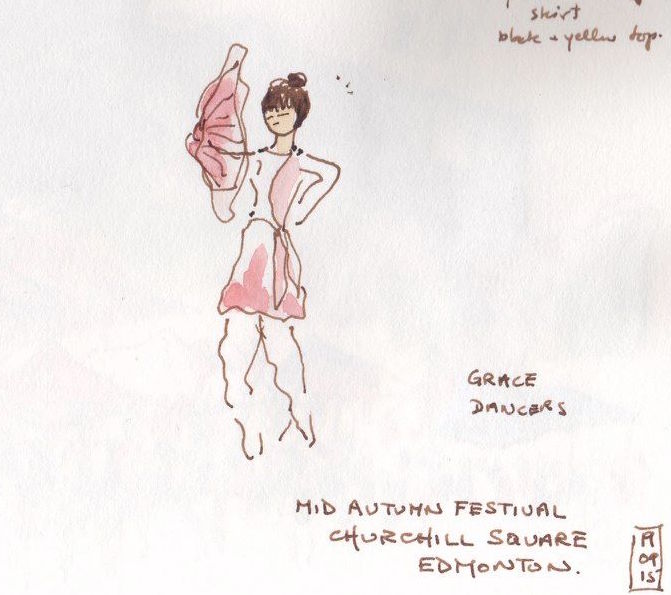 skirt
black + yellow top.
GRACE
DANCERS
MID AUTUMN FESTIVAL
CHURCHILL SQUARE
EDMONTON.
09
15